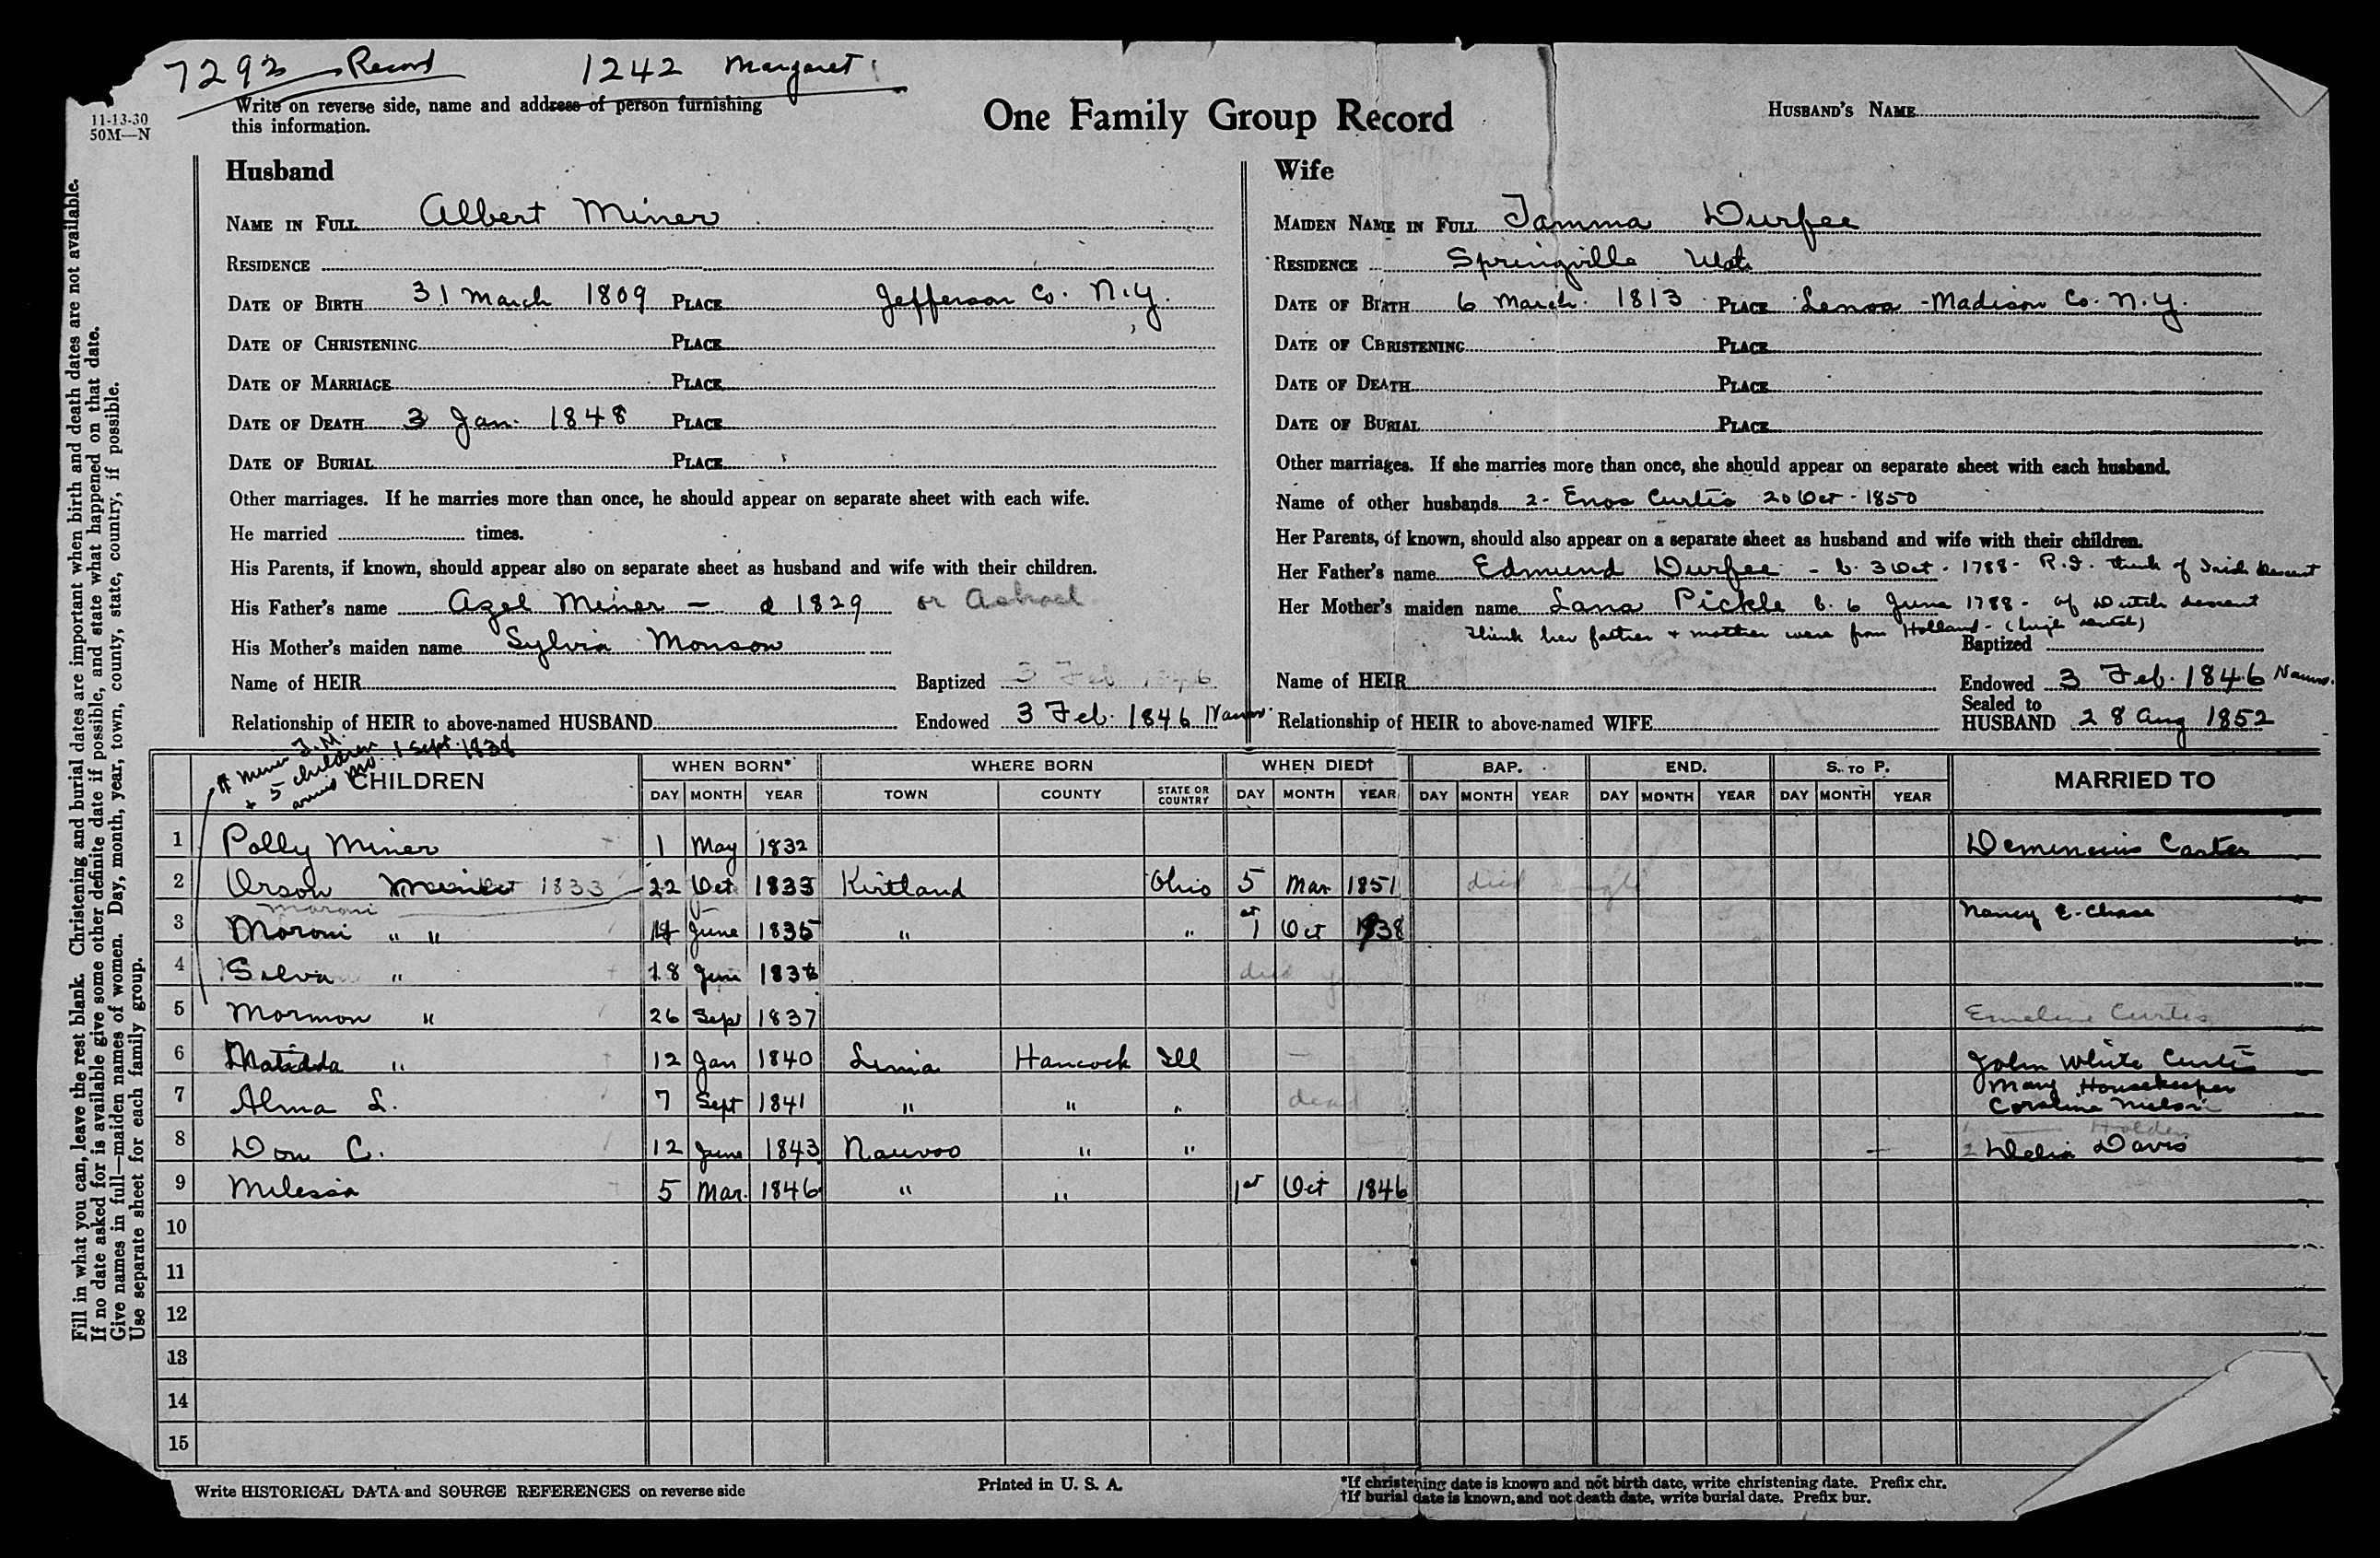 7293 Record 1242 Margaret
Write on reverse side, name and address of person furnishing
this information.
11-13-30
50M—N
One Family Group Record
HUSBAND'S NAME
Fill in what you can, leave the rest blank. Christening and burial dates are important when birth and death dates are not available.
If no date asked for is available give some other definite date if possible, and state what happened on that date.
Give names in full—maiden names of women. Day, month, year, town, county, state, country, if possible.
Use separate sheet for each family group.
Husband
NAME IN FULL Albert Miner
RESIDENCE
DATE OF BIRTH 31 March 1809 PLACE Jefferson Co. N.Y.
DATE OF CHRISTENING PLACE
DATE OF MARRIAGE PLACE
DATE OF DEATH 3 Jan. 1848 PLACE
DATE OF BURIAL PLACE
Other marriages. If he marries more than once, he should appear on separate sheet with each wife.
He married times.
His Parents, if known, should appear also on separate sheet as husband and wife with their children.
His Father's name Azel Miner — d 1829 or
His Mother's maiden name Sylvia Monson
Name of HEIR Baptized 3 Feb 1846
Relationship of HEIR to above-named HUSBAND Endowed 3 Feb. 1846
Wife
MAIDEN NAME IN FULL Tamma Durfee
RESIDENCE Springville Utah
DATE OF BIRTH 6 March. 1813 PLACE Lenox - Madison Co. N.Y.
DATE OF CHRISTENING PLACE
DATE OF DEATH PLACE
DATE OF BURIAL PLACE
Other marriages. If she marries more than once, she should appear on separate sheet with each husband.
Name of other husbands 2- Enos Curtis 20 Oct - 1850
Her Parents, if known, should also appear on a separate sheet as husband and wife with their children.
Her Father's name Edmund Durfee - b. 3 Oct - 1788 - R.I. think of Irish descent
Her Mother's maiden name Lana Pickle b. 6 June 1788 - of Dutch descent
think her father + mother were from Holland -
Baptized
Name of HEIR Endowed 3 Feb. 1846
Relationship of HEIR to above-named WIFE Sealed to HUSBAND 28 Aug 1852
A Miner T.M. + 5 children 1 Sept. 1838
CHILDREN WHEN BORN* WHERE BORN WHEN DIED† BAP. END. S. TO P. MARRIED TO
DAY MONTH YEAR TOWN COUNTY STATE OR COUNTRY DAY MONTH YEAR DAY MONTH YEAR DAY MONTH YEAR DAY MONTH YEAR
1 Polly Miner 1 May 1832 Carter
2 Orson 1833 22 Oct 1833 Kirtland Ohio 5 Mar 1851 died single
Moroni
3 Moroni " " 14 June 1835 " " 1 Oct 1938 Nancy E. Chase
4 Silva " 18 June 1836 died
5 Mormon " 26 Sept 1837 Emeline Curtis
6 Matilda " 12 Jan 1840 Lima Hancock Ill John White Curtis
7 Alma L. 7 Sept 1841 " " " dead Mary Housekeeper
Caroline
8 Don C. 12 June 1843 Nauvoo " " 1 Holden
2 Delia Davis
9 Melissa 5 Mar. 1846 " " 1st Oct 1846
10
11
12
13
14
15
Write HISTORICAL DATA and SOURCE REFERENCES on reverse side
Printed in U. S. A.
*If christening date is known and not birth date, write christening date. Prefix chr.
†If burial date is known, and not death date, write burial date. Prefix bur.